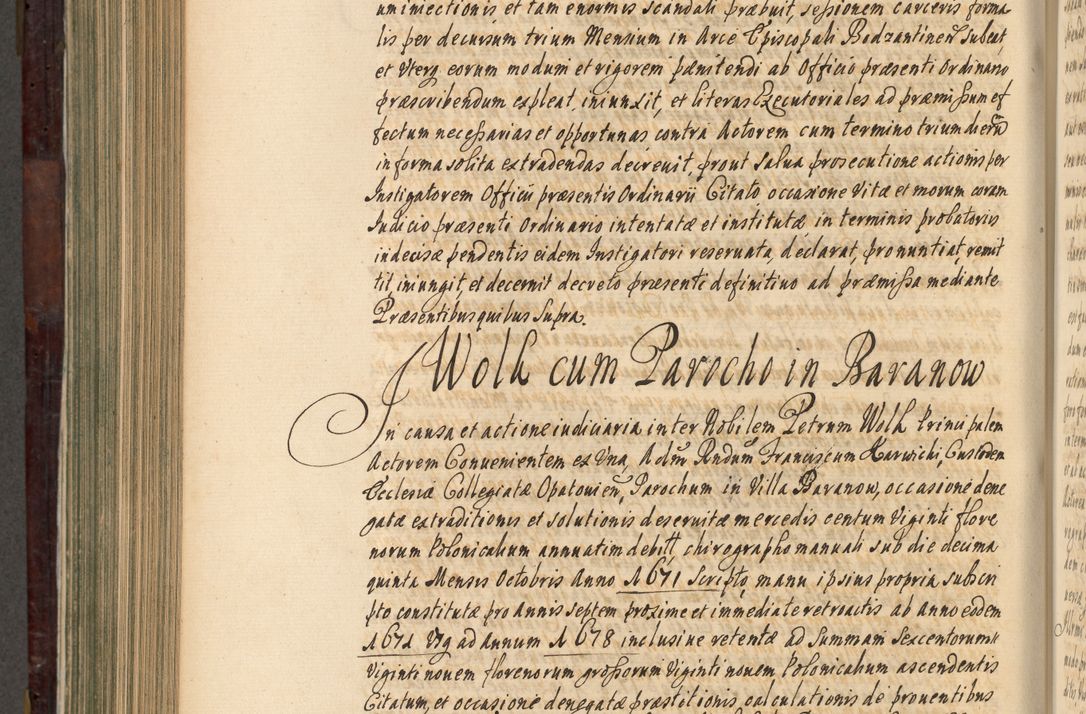 uminiectionis et tam enormis scandali præbuit, seßionem carceris forma
lis per decursum trium Mensium in Arce Episcopali Bodzantinen̄ subeat,
et Vterq eorum modum et rigorem pænitendi ab Officio præsenti Ordinario
præscribendum expleat, iniunxit, et literas Executoriales ad præmißum ef
fectum neceßarias et opportunas contra Actorem cum termino trium dierū
in forma solita extradendas decreuit, prout salua prosecutione actionis per
Instigatorem Officij præsentis Ordinarij Citato, occasione Vitæ et morum coram
Iudicio præsenti Ordinario intentatæ et institutæ in terminis probatoris
indecisæ pendentis eidem Instigatori reseruata, declarat, pronuntiat, remit
tit, iniungit, et decernit decreto præsenti definitiuo ad præmißa mediante
Præsentibus quibus Supra.
Wolk cum Parocho in Baranow
In causa et actione iudiciaria inter Nobilem Petrum Wolk Principalem
Actorem Conuenientem ex Vna, Adm̄ Rndūm Franciscum Harwichi, Custodem
Ecclesiæ Collegiatæ Opatouien̄, Parochum in Villa Baranow, occasione dene
gatæ extraditionis et solutionis deseruitæ mercedis centum Viginti flore
norum Polonicalium annuatim debitt, chirographo manuali sub die decima
quinta Mensis Octobris Anno 1671 scripto, manu ipsius propria subscri
pto constitutæ pro annis septem proxime et immediate retroactis ab anno eodem
1671 Vsq ad annum 1678 inclusiue retentæ ad Summam Sexcentorum
Viginti nouem florenorum großorum Viginti nouem Polonicalium ascendentis
Citatum, et occasione denegatæ præstitionis calculationis de prouentibus